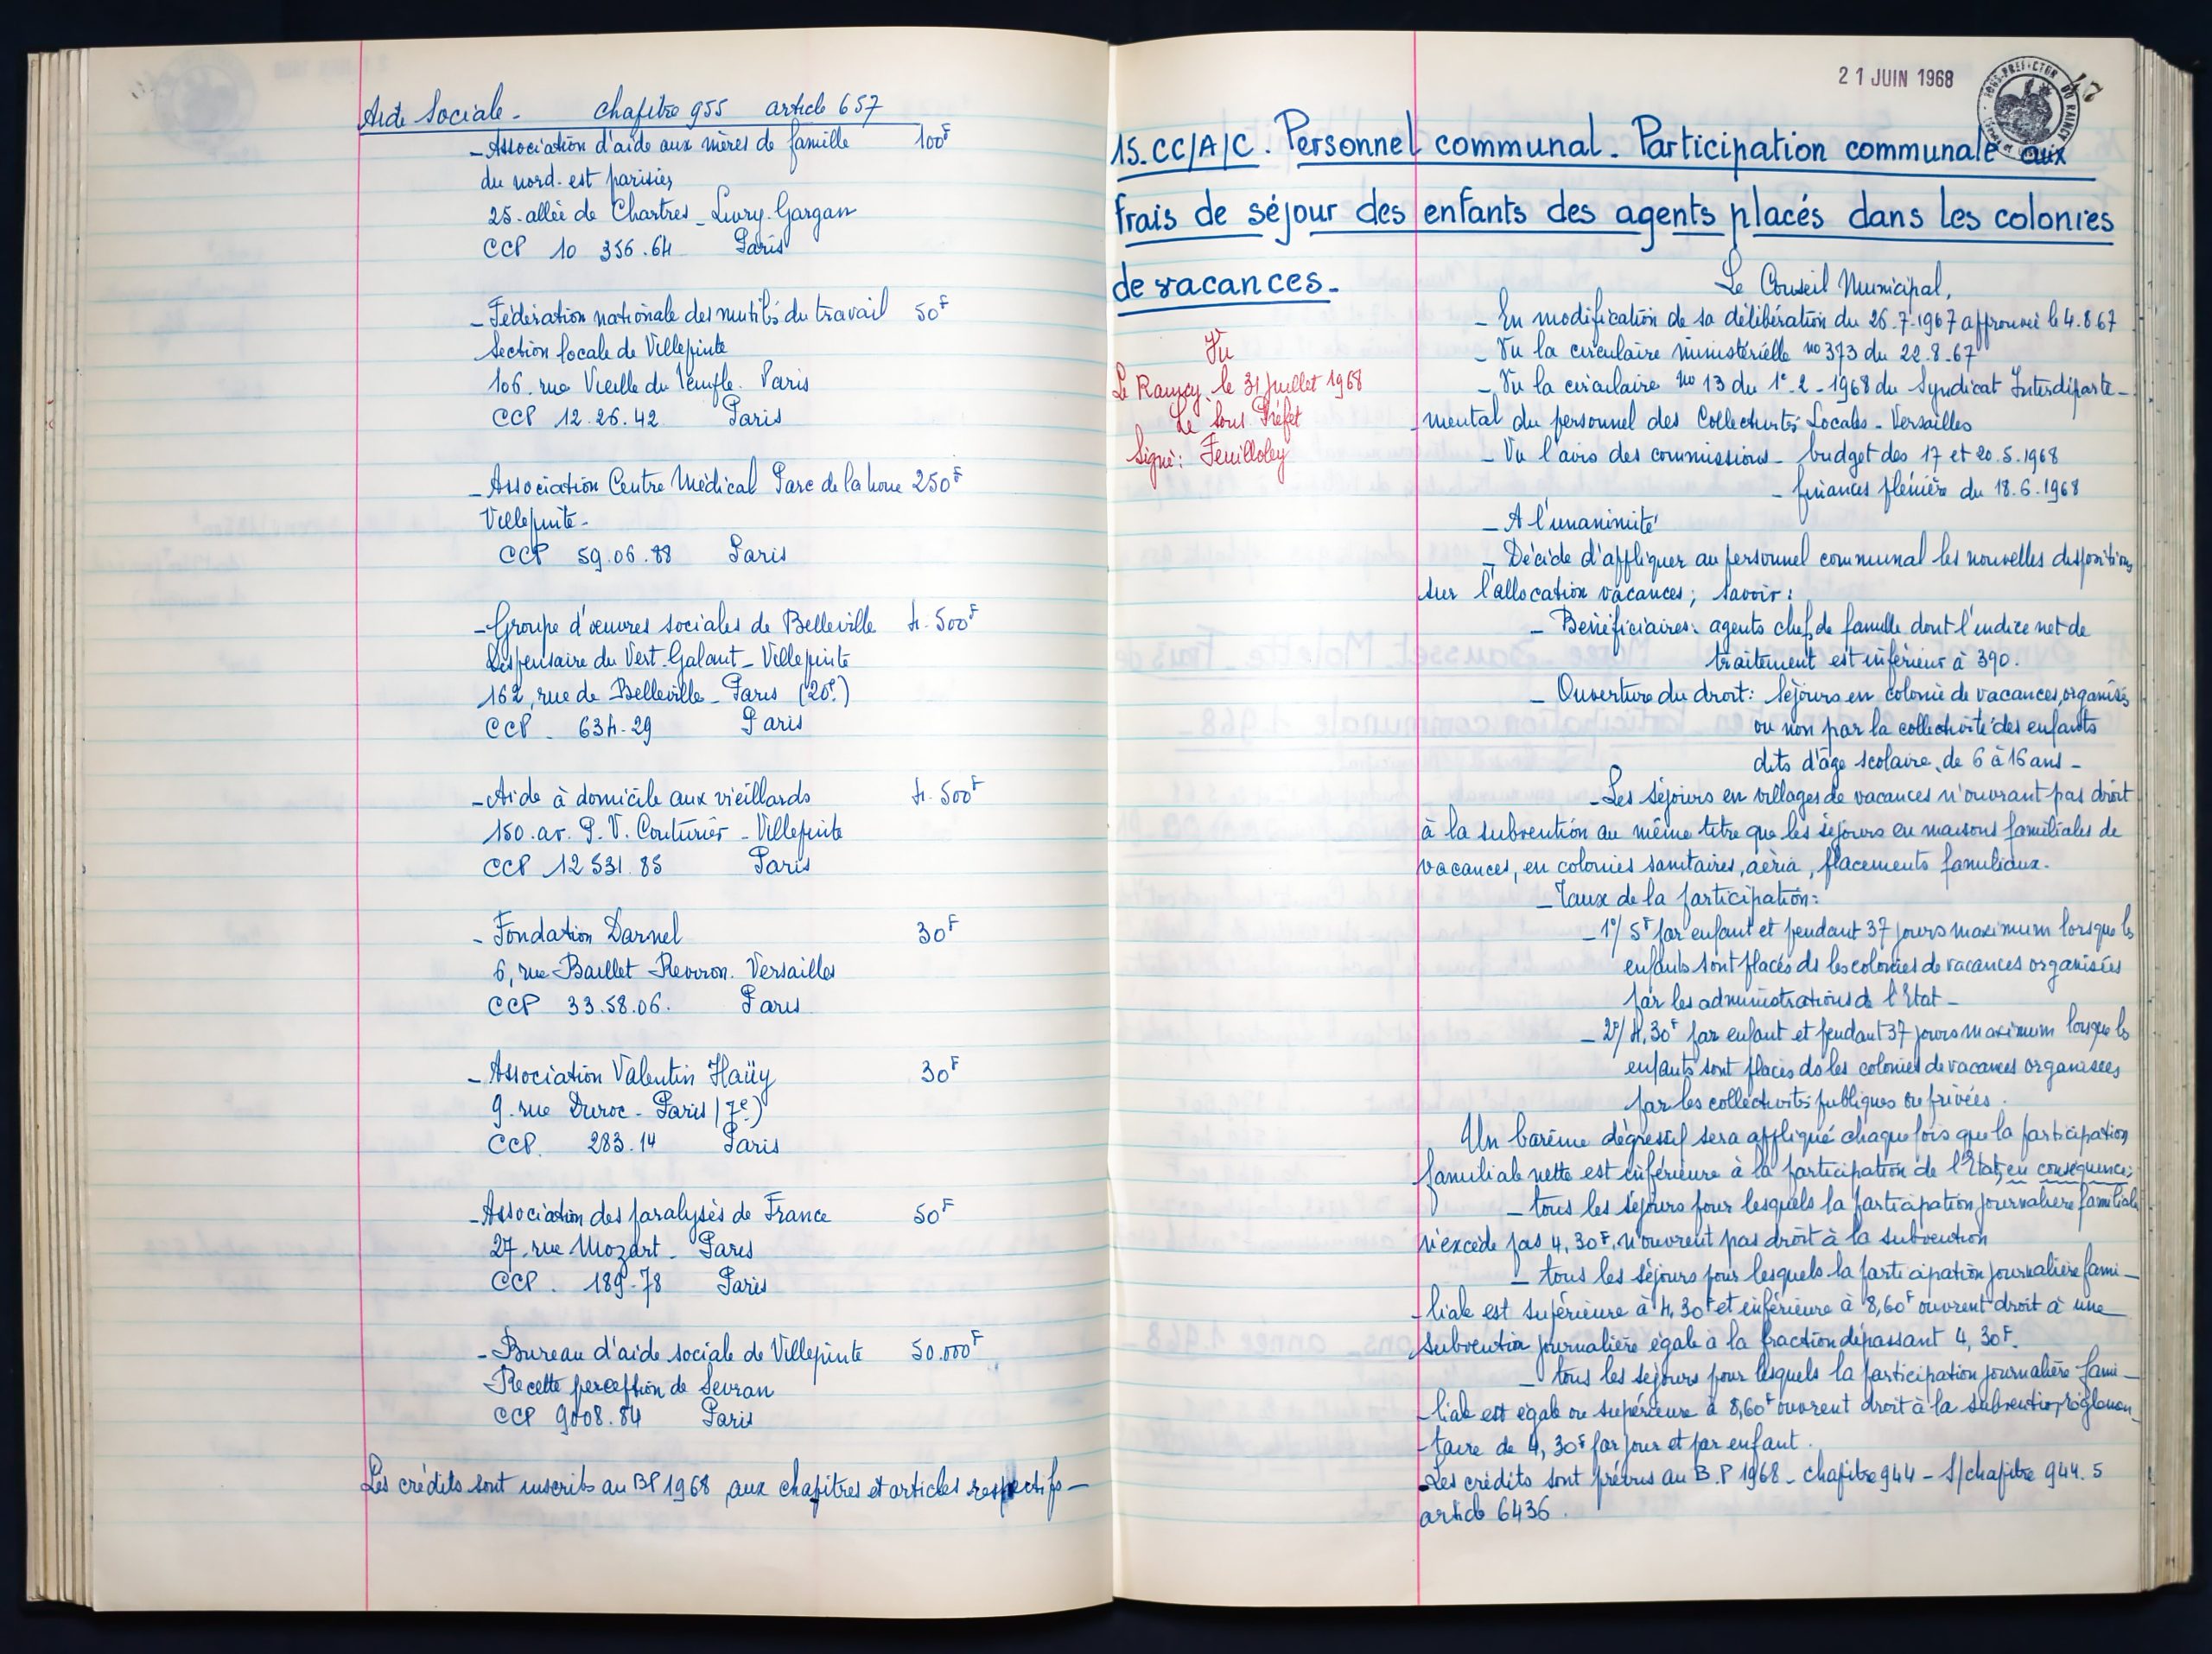 Aide Sociale - chapitre 955 article 657
- Association d'aide aux mères de famille 100F
du nord-est parisien
25-allée de Chartres - Livry-Gargan
CCP 10 356.64 Paris
- Fédération nationale des mutilés du travail 50F
Section locale de Villepinte
106. rue Vieille du Temple. Paris
CCP 12.26.42 Paris
- Association Centre Médical Parc de la Noue 250F
Villepinte -
CCP 59.06.88 Paris
- Groupe d'œuvres sociales de Belleville 4.500F
Dispensaire du Vert-Galant - Villepinte
162, rue de Belleville - Paris (20e)
CCP - 634-29 Paris
- Aide à domicile aux vieillards 4.500F
150. av. P.V. Couturier - Villepinte
CCP 12 531.85 Paris
- Fondation Darnel 30F
6, rue Baillet Reviron. Versailles
CCP 33.58.06. Paris
- Association Valentin Haüy 30F
9. rue Duroc - Paris (7e)
CCP. 283.14 Paris
- Association des paralysés de France 50F
27. rue Mozart - Paris
CCP. 189-78 Paris
- Bureau d'aide sociale de Villepinte 50.000F
Recette perception de Sevran
CCP 9008.84 Paris
Les crédits sont inscrits au BP 1968 aux chapitres et articles respectifs -
21 JUIN 1968
SOUS-PREFECTURE DU RAINCY
47
15.CC/A/C. Personnel communal. Participation communale aux
frais de séjour des enfants des agents placés dans les colonies
de vacances.
Vu
Le Raincy, le 31 Juillet 1968
Le Sous Préfet
Signé: Feuilloley
Le Conseil Municipal,
- En modification de sa délibération du 26.7.1967 approuvée le 4.8.67
- Vu la circulaire ministérielle no 373 du 22.8.67
- Vu la circulaire No 13 du 1e.2-1968 du Syndicat Interdéparte-
mental du personnel des Collectivités Locales - Versailles
- Vu l'avis des commissions - budget des 17 et 20.5.1968
- finances plénière du 18.6.1968
- A l'unanimité
- Décide d'appliquer au personnel communal les nouvelles dispositions
sur l'allocation vacances; savoir:
- Bénéficiaires: agents chefs de famille dont l'indice net de
traitement est inférieur à 390.
- Ouverture du droit: Séjours en colonie de vacances, organisés
ou non par la collectivité des enfants
dits d'âge scolaire, de 6 à 16 ans -
- Les séjours en villages de vacances n'ouvrant pas droit
à la subvention au même titre que les séjours en maisons familiales de
vacances, en colonies sanitaires, aéria, placements familiaux.
- Taux de la participation:
- 1°/ 5F par enfant et pendant 37 jours maximum lorsque les
enfants sont placés ds les colonies de vacances organisées
par les administrations de l'Etat -
- 2°/ 4,30F par enfant et pendant 37 jours maximum lorsque les
enfants sont placés ds les colonies de vacances organisées
par les collectivités publiques ou privées.
Un barème dégressif sera appliqué chaque fois que la participation
familiale nette est inférieure à la participation de l'Etat, en conséquence;
- tous les séjours pour lesquels la participation journalière familiale
n'excède pas 4,30F, n'ouvrent pas droit à la subvention
- tous les séjours pour lesquels la participation journalière fami-
liale est supérieure à 4,30F et inférieure à 8,60F ouvrent droit à une
subvention journalière égale à la fraction dépassant 4,30F.
- tous les séjours pour lesquels la participation journalière fami-
liale est égale ou supérieure à 8,60F ouvrent droit à la subvention réglemen-
taire de 4,30F par jour et par enfant.
Les crédits sont prévus au B.P 1968 - chapitre 944 - S/chapitre 944.5
article 6436.